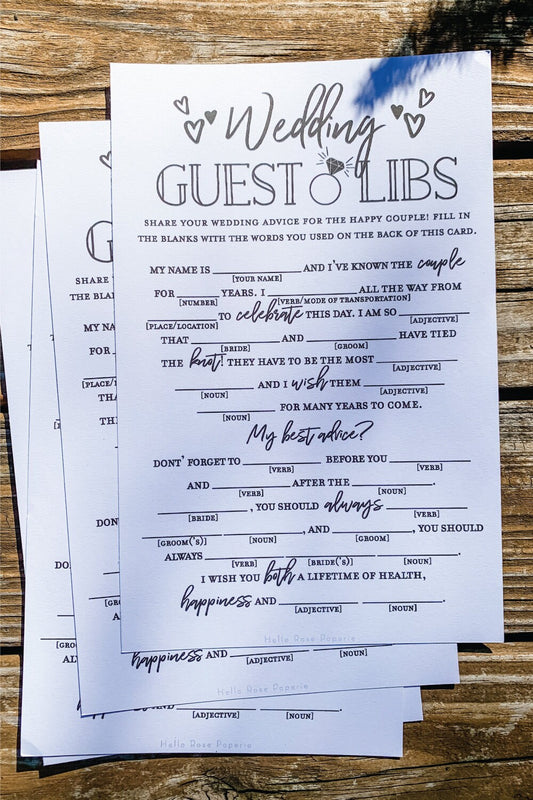 Wedding
GUEST LIBS
SHARE YOUR WEDDING ADVICE FOR THE HAPPY COUPLE! FILL IN
THE BLANKS WITH THE WORDS YOU USED ON THE BACK OF THIS CARD.
MY NAME IS ____________ AND I'VE KNOWN THE couple
[YOUR NAME]
FOR ______ YEARS. I ____________ ALL THE WAY FROM
[NUMBER] [VERB/MODE OF TRANSPORTATION]
__________ TO celebrate THIS DAY. I AM SO __________
[PLACE/LOCATION] [ADJECTIVE]
THAT __________ AND __________ HAVE TIED
[BRIDE] [GROOM]
THE knot! THEY HAVE TO BE THE MOST __________
[ADJECTIVE]
__________ AND I wish THEM __________
[NOUN] [ADJECTIVE]
__________ FOR MANY YEARS TO COME.
[NOUN]
My best advice?
DONT' FORGET TO __________ BEFORE YOU __________
[VERB] [VERB]
AND __________ AFTER THE __________.
[VERB] [NOUN]
__________, YOU SHOULD always __________
[BRIDE] [VERB]
__________ __________, AND __________, YOU SHOULD
[GROOM('S)] [NOUN] [GROOM]
ALWAYS __________ __________ __________.
[VERB] [BRIDE('S)] [NOUN]
I WISH YOU both A LIFETIME OF HEALTH,
happiness AND __________ __________.
[ADJECTIVE] [NOUN]
Hello Rose Paperie
G
SHARE
THE BLAN
MY NA
FOR
[PLACE/
THA
TH
DON
[GRO
AL
happiness AND __________ __________.
[ADJECTIVE] [NOUN]
Hello Rose Paperie
DO
[GRO
AL
AND __________ __________.
[ADJECTIVE] [NOUN]
Hello Rose Paperie